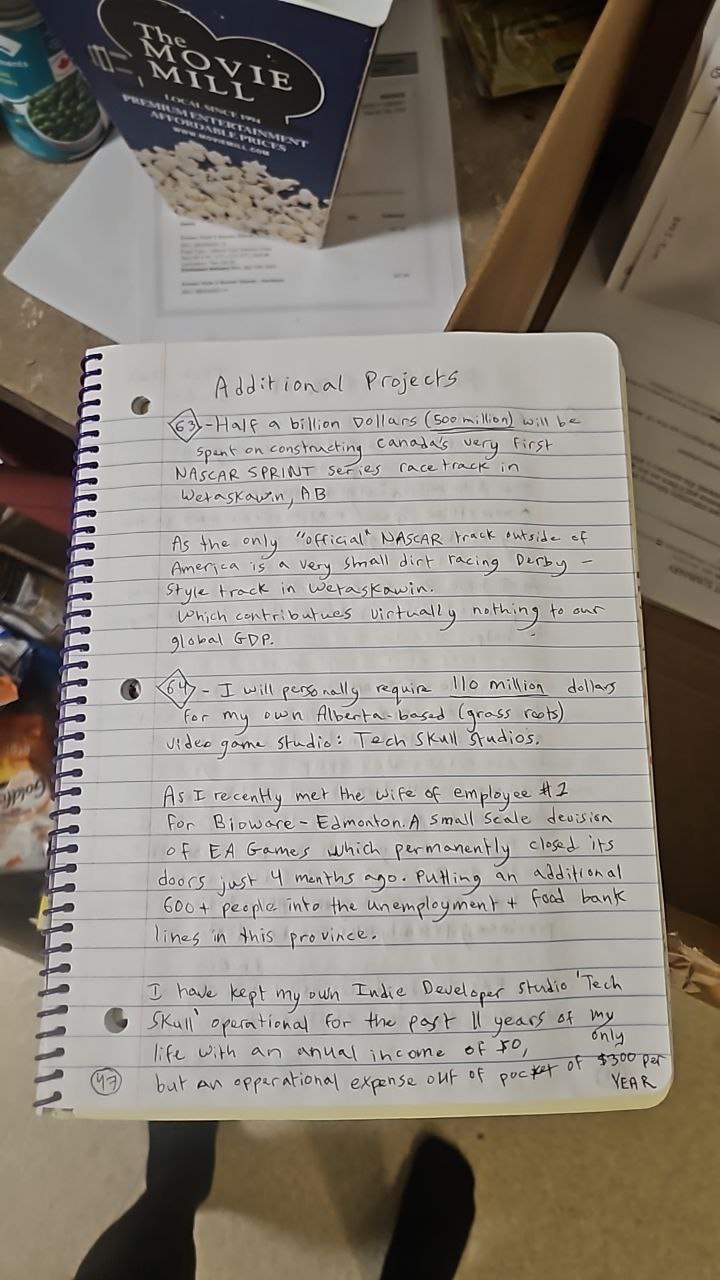 The
MOVIE
MILL
LOCAL SINCE 1994
PREMIUM ENTERTAINMENT
AFFORDABLE PRICES
WWW.MOVIEMILL.COM
Additional Projects
63 - Half a billion Dollars (500 million) will be
spent on constructing Canada's very first
NASCAR SPRINT series racetrack in
Wetaskawin, AB
As the only "official" NASCAR track outside of
America is a very small dirt racing Derby -
Style track in Wetaskawin.
Which contributues virtually nothing to our
global GDP.
64 - I will personally require 110 million dollars
for my own Alberta-based (grass roots)
video game studio: Tech Skull Studios.
As I recently met the wife of employee #1
for Bioware - Edmonton. A small scale devision
of EA Games which permanently closed its
doors just 4 months ago. Putting an additional
600+ people into the unemployment + food bank
lines in this province.
I have kept my own Indie Developer studio 'Tech
Skull' operational for the past 11 years of my
life with an anual income of $0, only
but an opperational expense out of pocket of $300 per
47 YEAR